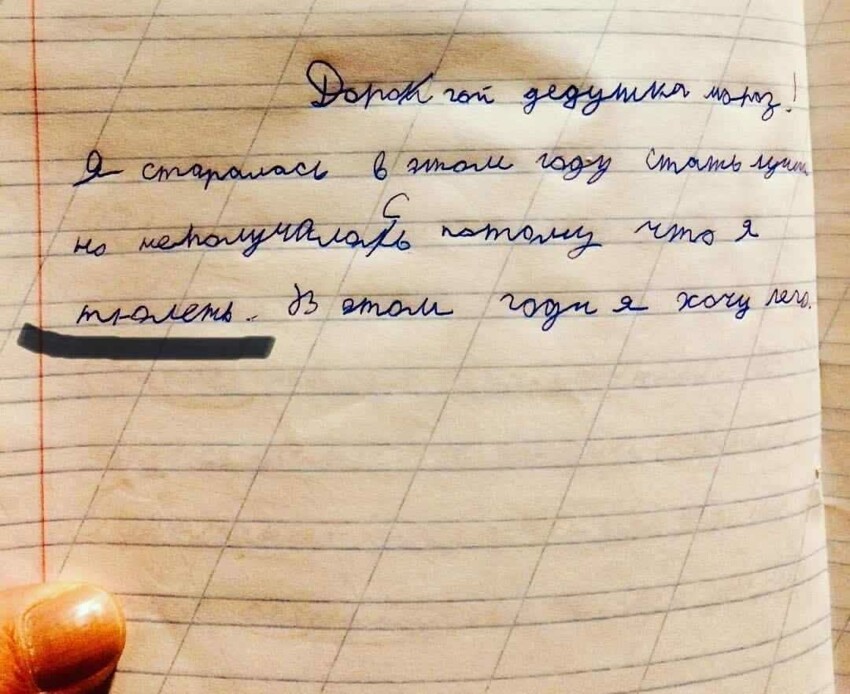 Дорокгой дедушка мороз!
Я старалась в этом году стать лучш
но неполучалась потому что я
тюлень. В этом годи я хочу лего.